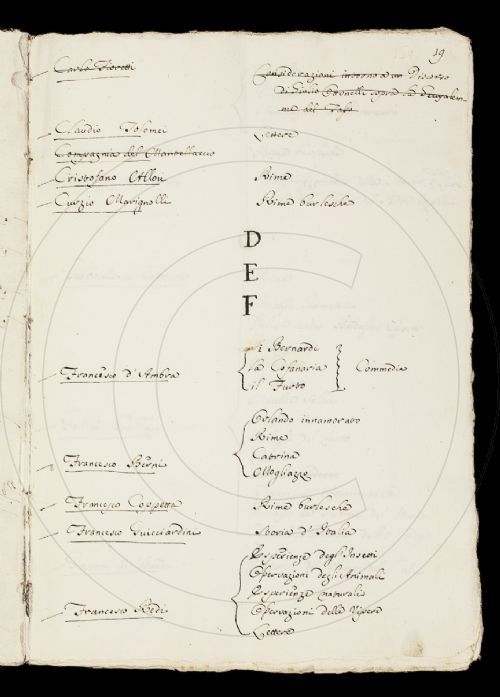 19
Carlo Fioretti
Considerazioni intorno a un Discorso
di Giulio Ottonelli sopra la Gerusalem-
me del Tasso
Claudio Tolomei Lettere
Compagnia del Mantellaccio
Cristofano Allori Rime
Curzio Marignolli Rime burlesche
D
E
F
i Bernardi
Francesco d'Ambra la Cofanaria Commedie
il Furto
Orlando innamorato
Rime
Catrina
Francesco Berni Mogliazzo
Francesco Coppetta Rime burlesche
Francesco Guicciardini Storia d'Italia
Esperienze degl'Insetti
Osservazioni degli Animali
Esperienze naturali
Francesco Redi Osservazioni delle Vipere
Lettere